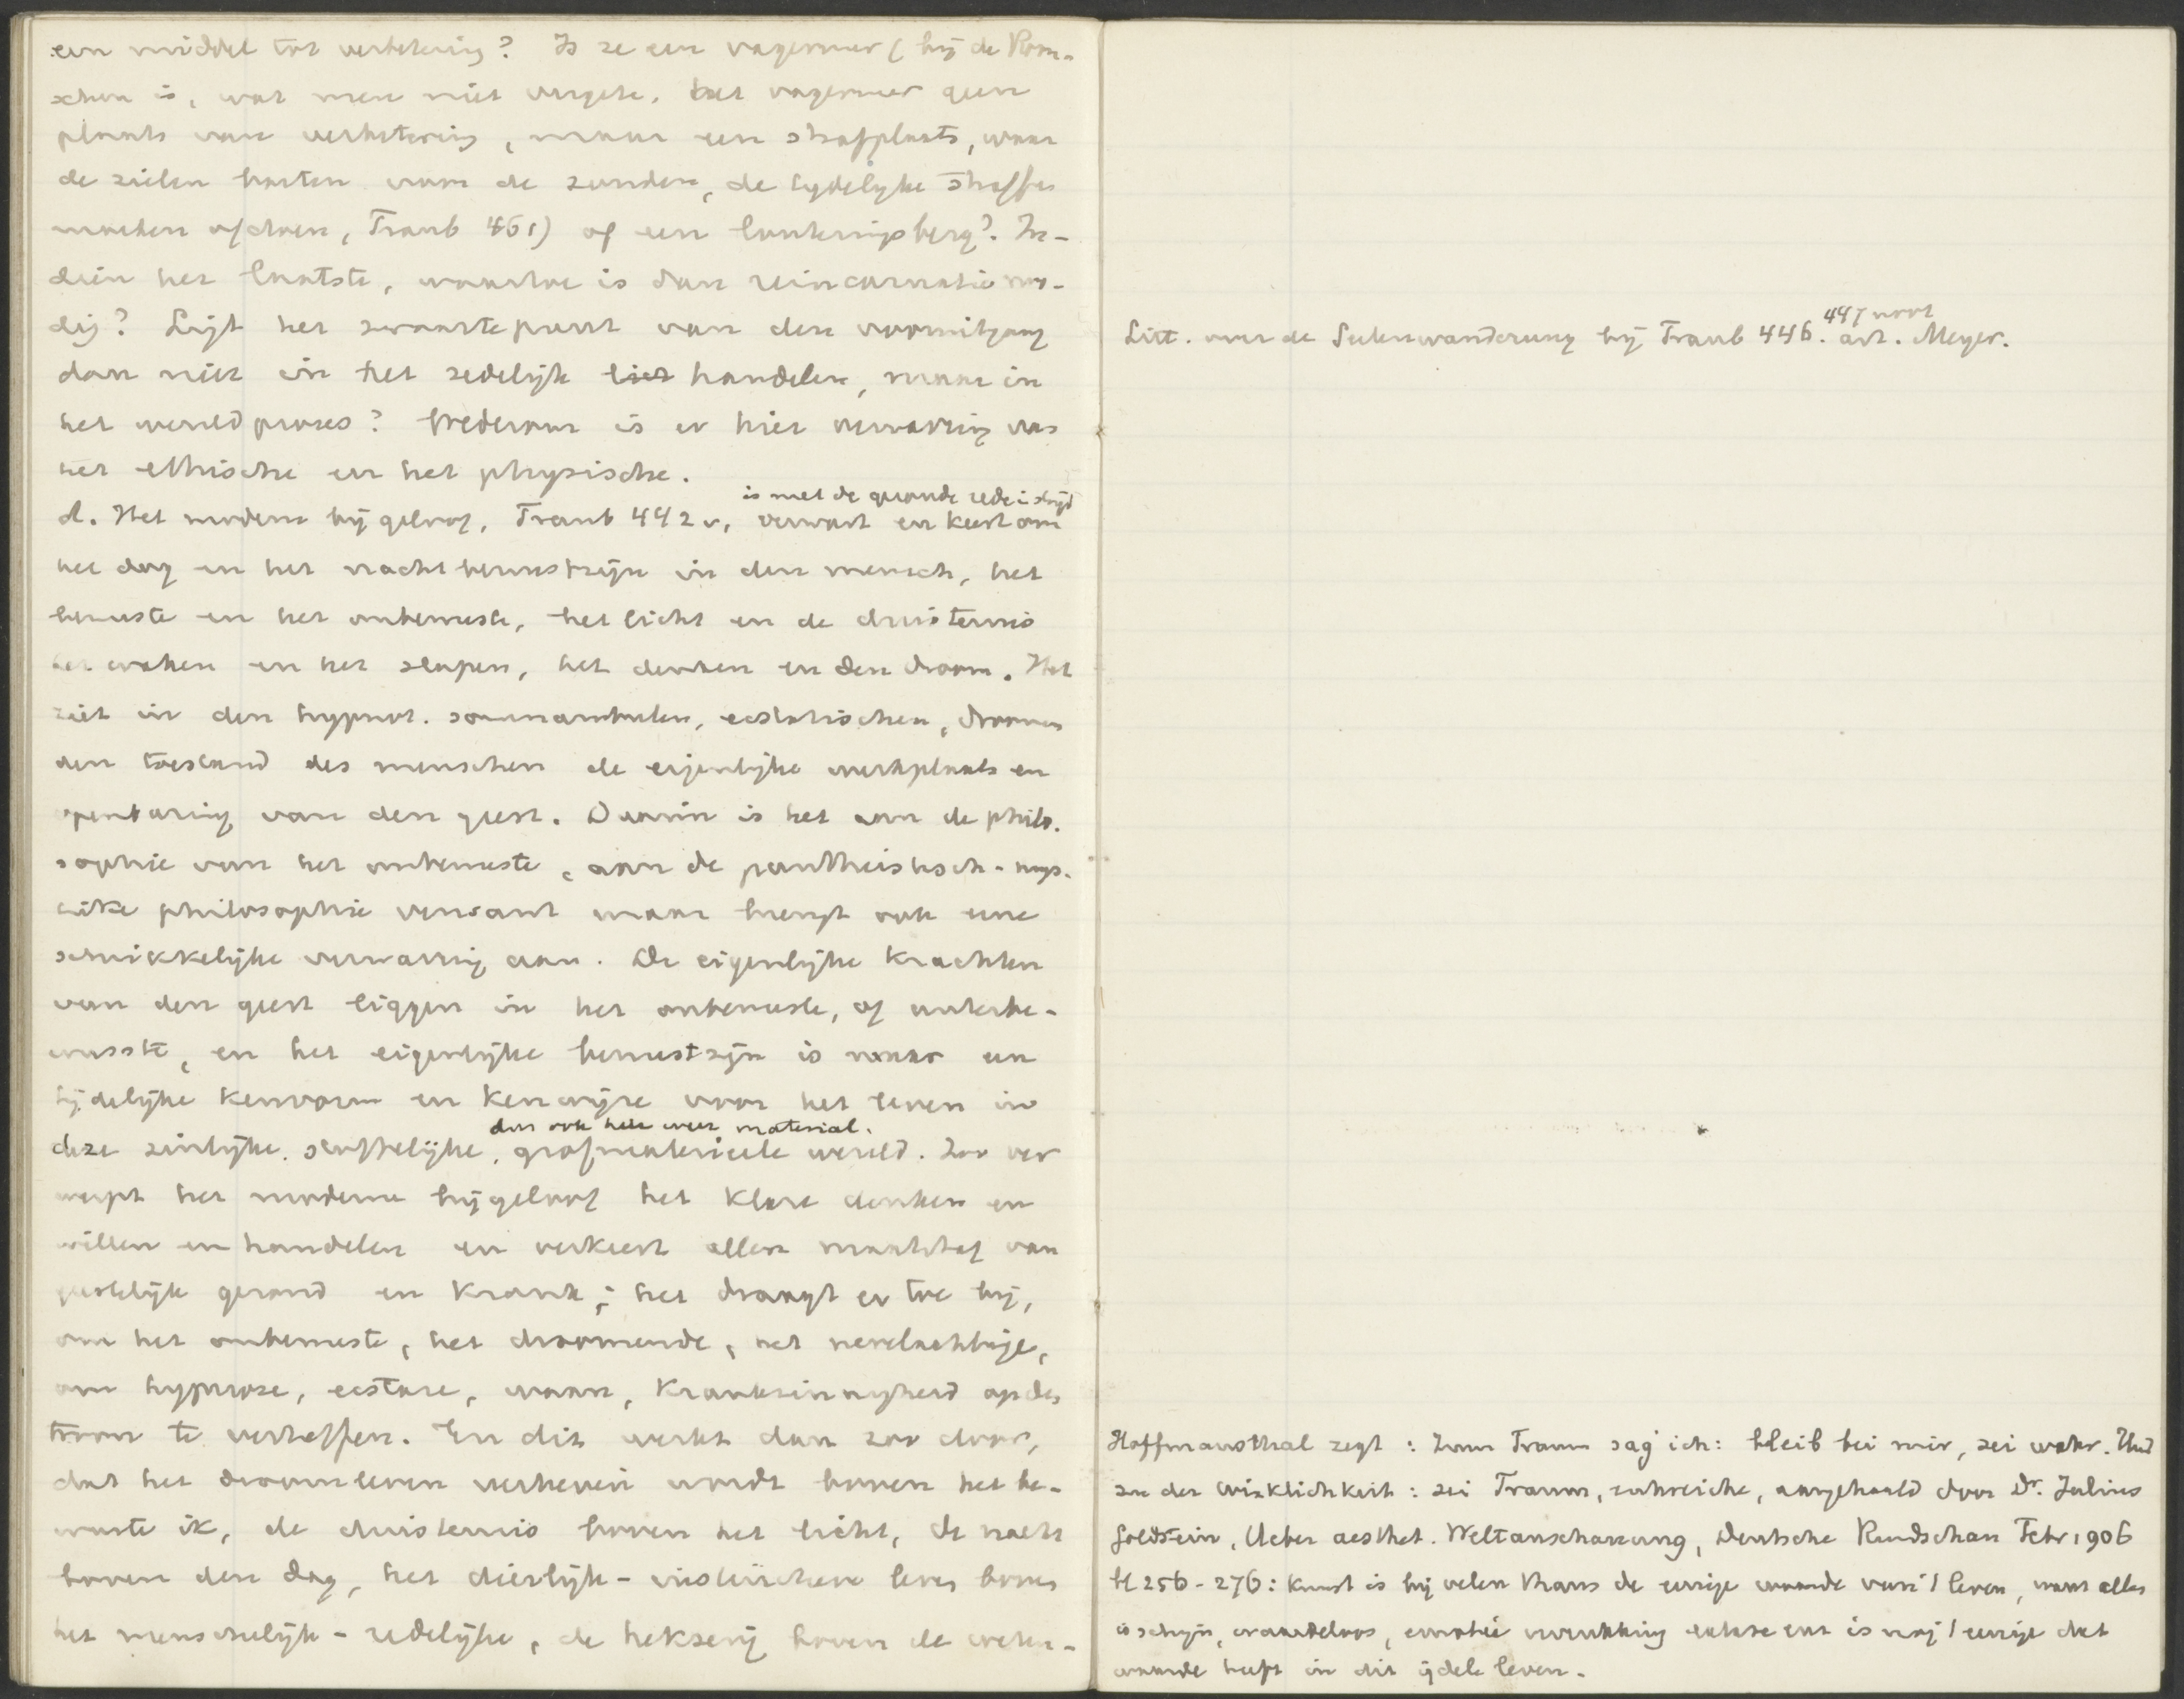 een middel tot verbetering? Is ze een vagevuur (bij de Room-
schen is, wat men niet vergete, het vagevuur geen
plaats van verbetering, maar een strafplaats, waar
de zielen boeten voor de zonden, de tijdelijke straffen
moeten afdoen, Traub 461) of een louteringsberg? In-
dien het laatste, waartoe is dan reincarnatie no-
dig? Ligt het zwaartepunt van den vooruitgang
dan niet in het zedelijk handelen, maar in
het wereldproces? Wederom is er hier verwarring van
het ethische en het physische.
is met de gezonde rede i. strijd
d. Het moderne bijgeloof, Traub 442 v, verwart en keert om
het dag en het nachtbewustzijn in den mensch, het
bewuste en het onbewuste, het licht en de duisternis
het waken en het slapen, het denken en den droom. Het
ziet in den hypnot. somnambulen, ecstatischen, droomen
den toestand des menschen de eigenlijke werkplaats en
openbaring van den geest. Daarin is het aan de philo-
sophie van het onbewuste, aan de pantheistisch-mys-
tike philosophie verwant maar brengt ook eene
schrikkelijke verwarring aan. De eigenlijke krachten
van den geest liggen in het onbewuste, of onderbe-
wusste, en het eigenlijke bewustzijn is maar een
tijdelijke kenvorm en kenwijze voor het leven in
dus ook hier weer material.
deze zinlijke, stoffelijke, grofmaterieele wereld. Zoo ver
werpt het moderne bijgeloof het klare denken en
willen en handelen en verkeert allen maatstaf van
geestelijk gezond en krank; het draagt er toe bij,
om het onbewuste, het droomende, het nevelachtige,
om hypnose, ecstase, waan, krankzinnigheid op den
troon te verheffen. En dit werkt dan zoo door,
dat het droomleven verheven wordt boven het be-
wuste ik, de duisternis boven het licht, de nacht
boven den dag, het dierlijk-instinctieve leven boven
het menschelijk-redelijke, de hekserij boven de weten-
447 noot
Litt. over de Seelenwanderung bij Traub 446. art. Meyer.
Hoffmansthal zegt: Zum Traum sag' ich: bleib bei mir, sei wahr. Und
zu der Wirklichkeit: sei Traum, entweiche, aangehaald door Dr. Julius
Goldstein, Ueber aesthet. Weltanschauung, Deutsche Rundschau Febr 1906
bl 256-276: Kunst is bij velen thans de eenige waarde van 't leven, want alles
is schijn, waardeloos, emotie verrukking extase enz is nog 't eenige dat
waarde heeft in dit ijdele leven.